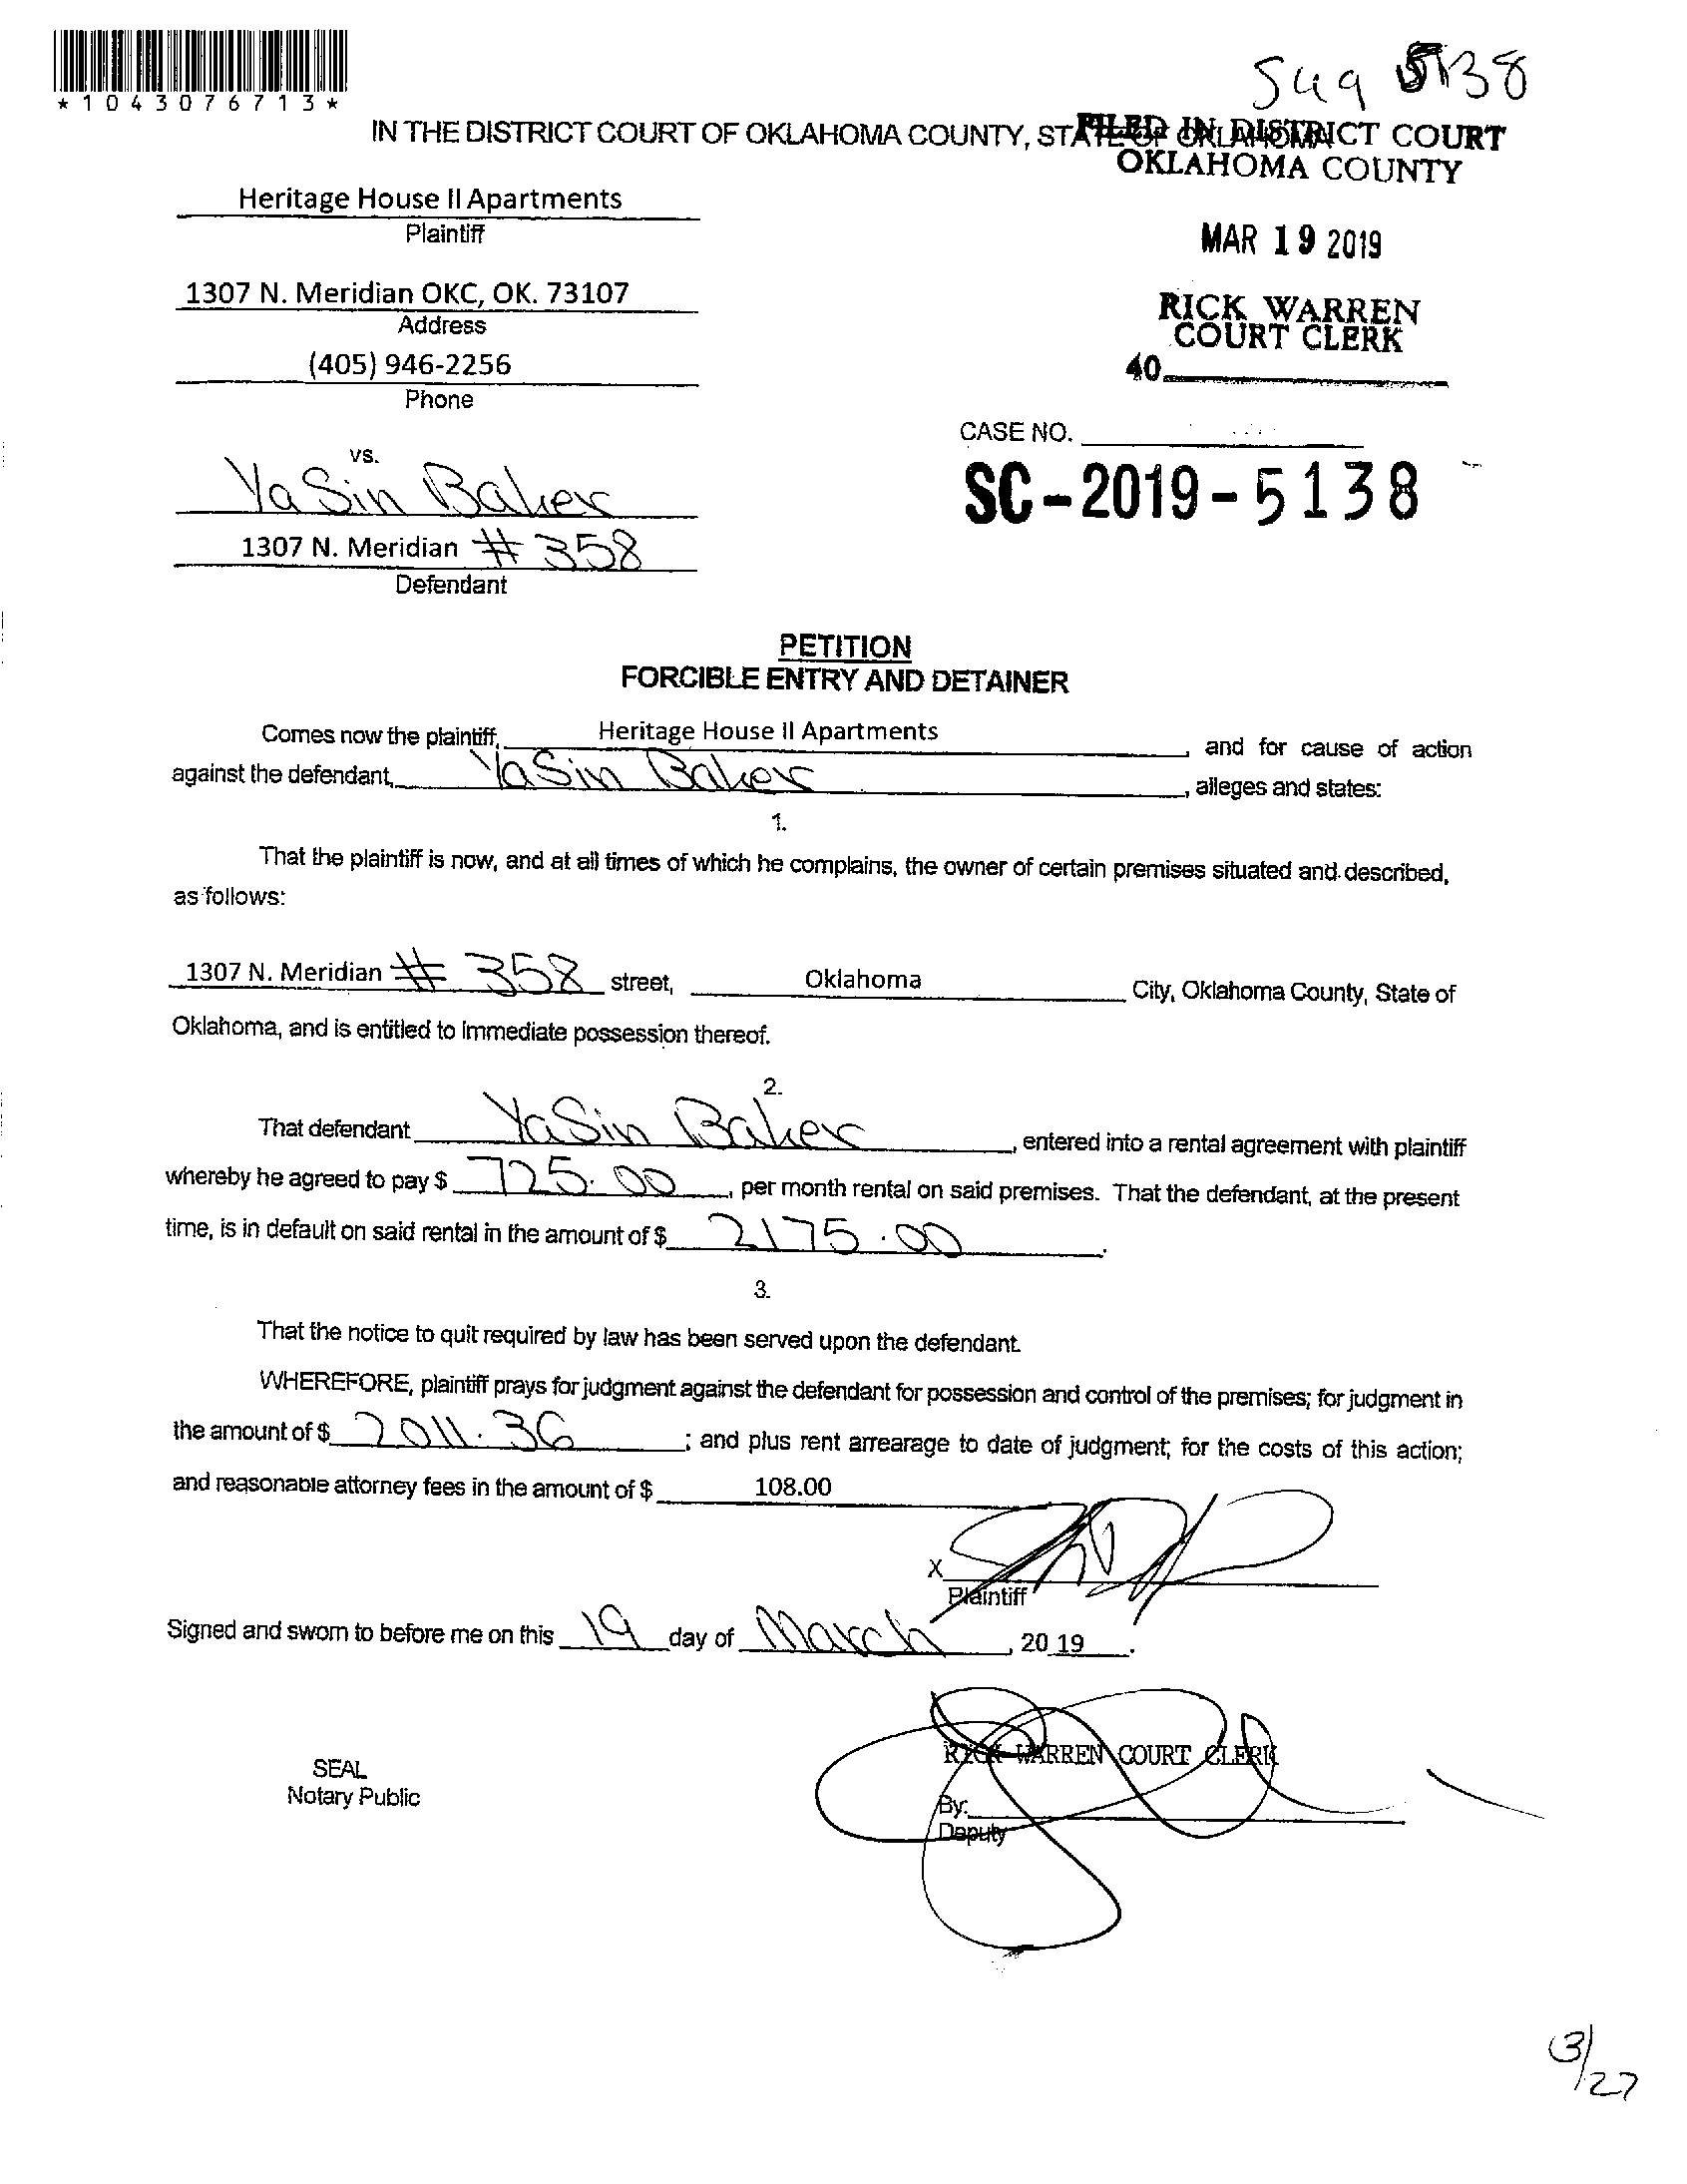 *1043076713*
5138
IN THE DISTRICT COURT OF OKLAHOMA COUNTY, STATE OF OKLAHOMA
FILED IN DISTRICT COURT
OKLAHOMA COUNTY
Heritage House II Apartments
Plaintiff
MAR 19 2019
1307 N. Meridian OKC, OK. 73107
Address
RICK WARREN
COURT CLERK
(405) 946-2256
40
Phone
CASE NO.
vs.
SC-2019-5138
YaSin Baker
1307 N. Meridian # 358
Defendant
PETITION
FORCIBLE ENTRY AND DETAINER
Comes now the plaintiff, Heritage House II Apartments, and for cause of action
against the defendant, YaSin Baker, alleges and states:
1.
That the plaintiff is now, and at all times of which he complains, the owner of certain premises situated and described,
as follows:
1307 N. Meridian # 358 street, Oklahoma City, Oklahoma County, State of
Oklahoma, and is entitled to immediate possession thereof.
2.
That defendant YaSin Baker, entered into a rental agreement with plaintiff
whereby he agreed to pay $ 725.00, per month rental on said premises. That the defendant, at the present
time, is in default on said rental in the amount of $ 2175.00.
3.
That the notice to quit required by law has been served upon the defendant.
WHEREFORE, plaintiff prays for judgment against the defendant for possession and control of the premises; for judgment in
the amount of $ 2011.36; and plus rent arrearage to date of judgment; for the costs of this action;
and reasonable attorney fees in the amount of $ 108.00
X
Plaintiff
Signed and sworn to before me on this 19 day of March, 20 19.
RICK WARREN COURT CLERK
SEAL
Notary Public
By:
Deputy
3/27